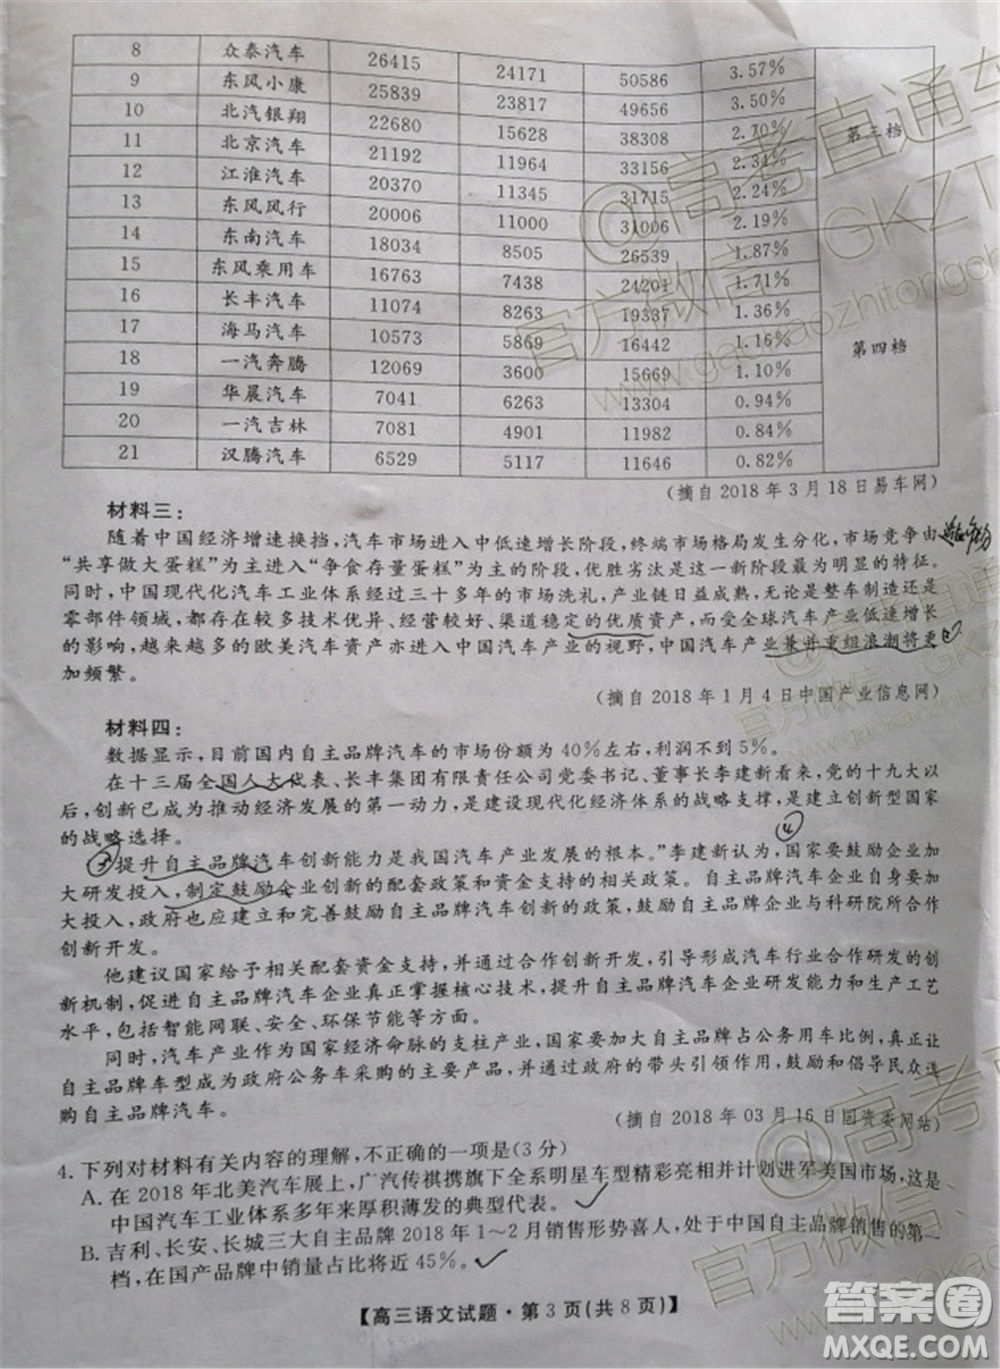 8 众泰汽车 26415 24171 50586 3.57%
9 东风小康 25839 23817 49656 3.50%
10 北汽银翔 22680 15628 38308 2.70% 第三档
11 北京汽车 21192 11964 33156 2.34%
12 江淮汽车 20370 11345 31715 2.24%
13 东风风行 20006 11000 31006 2.19%
14 东南汽车 18034 8505 26539 1.87%
15 东风乘用车 16763 7438 24201 1.71%
16 长丰汽车 11074 8263 19337 1.36%
17 海马汽车 10573 5869 16442 1.16% 第四档
18 一汽奔腾 12069 3600 15669 1.10%
19 华晨汽车 7041 6263 13304 0.94%
20 一汽吉林 7081 4901 11982 0.84%
21 汉腾汽车 6529 5117 11646 0.82%
(摘自2018年3月18日易车网)
材料三:
随着中国经济增速换挡,汽车市场进入中低速增长阶段,终端市场格局发生分化,市场竞争由
“共享做大蛋糕”为主进入“争食存量蛋糕”为主的阶段,优胜劣汰是这一新阶段最为明显的特征。
同时,中国现代化汽车工业体系经过三十多年的市场洗礼,产业链日益成熟,无论是整车制造还是
零部件领域,都存在较多技术优异、经营较好、渠道稳定的优质资产,而受全球汽车产业低速增长
的影响,越来越多的欧美汽车资产亦进入中国汽车产业的视野,中国汽车产业兼并重组浪潮将更
加频繁。
(摘自2018年1月4日中国产业信息网)
材料四:
数据显示,目前国内自主品牌汽车的市场份额为40%左右,利润不到5%。
在十三届全国人大代表、长丰集团有限责任公司党委书记、董事长李建新看来,党的十九大以
后,创新已成为推动经济发展的第一动力,是建设现代化经济体系的战略支撑,是建立创新型国家
的战略选择。
“提升自主品牌汽车创新能力是我国汽车产业发展的根本。”李建新认为,国家要鼓励企业加
大研发投入,制定鼓励企业创新的配套政策和资金支持的相关政策。自主品牌汽车企业自身要加
大投入,政府也应建立和完善鼓励自主品牌汽车创新的政策,鼓励自主品牌企业与科研院所合作
创新开发。
他建议国家给予相关配套资金支持,并通过合作创新,引导形成汽车行业合作研发的创
新机制,促进自主品牌汽车企业真正掌握核心技术,提升自主品牌汽车企业研发能力和生产工艺
水平,包括智能网联、安全、环保节能等方面。
同时,汽车产业作为国家经济命脉的支柱产业,国家要加大自主品牌占公务用车比例,真正让
自主品牌车型成为政府公务车采购的主要车型,并通过政府的带头引领作用,鼓励和倡导民众选
购自主品牌汽车。
(摘自2018年03月16日国资委网站)
4. 下列对材料有关内容的理解,不正确的一项是(3分)
A. 在2018年北美汽车展上,广汽传祺携旗下全系明星车型精彩亮相并计划进军美国市场,这是
中国汽车工业体系多年来厚积薄发的典型代表。
B. 吉利、长安、长城三大自主品牌2018年1～2月销售形势喜人,处于中国自主品牌销售的第一
档,在国产品牌中销量占比将近45%。
【高三语文试题·第3页(共8页)】
@高考直通车
官方微信:GKZT
www.gaokaozhitongch
答案圈
MXQE.COM